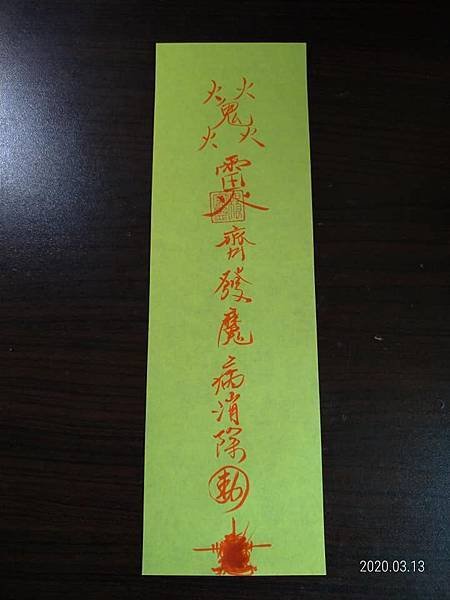 火 火
鬼
火 火
雷火齊發魔病消除勅
2020.03.13